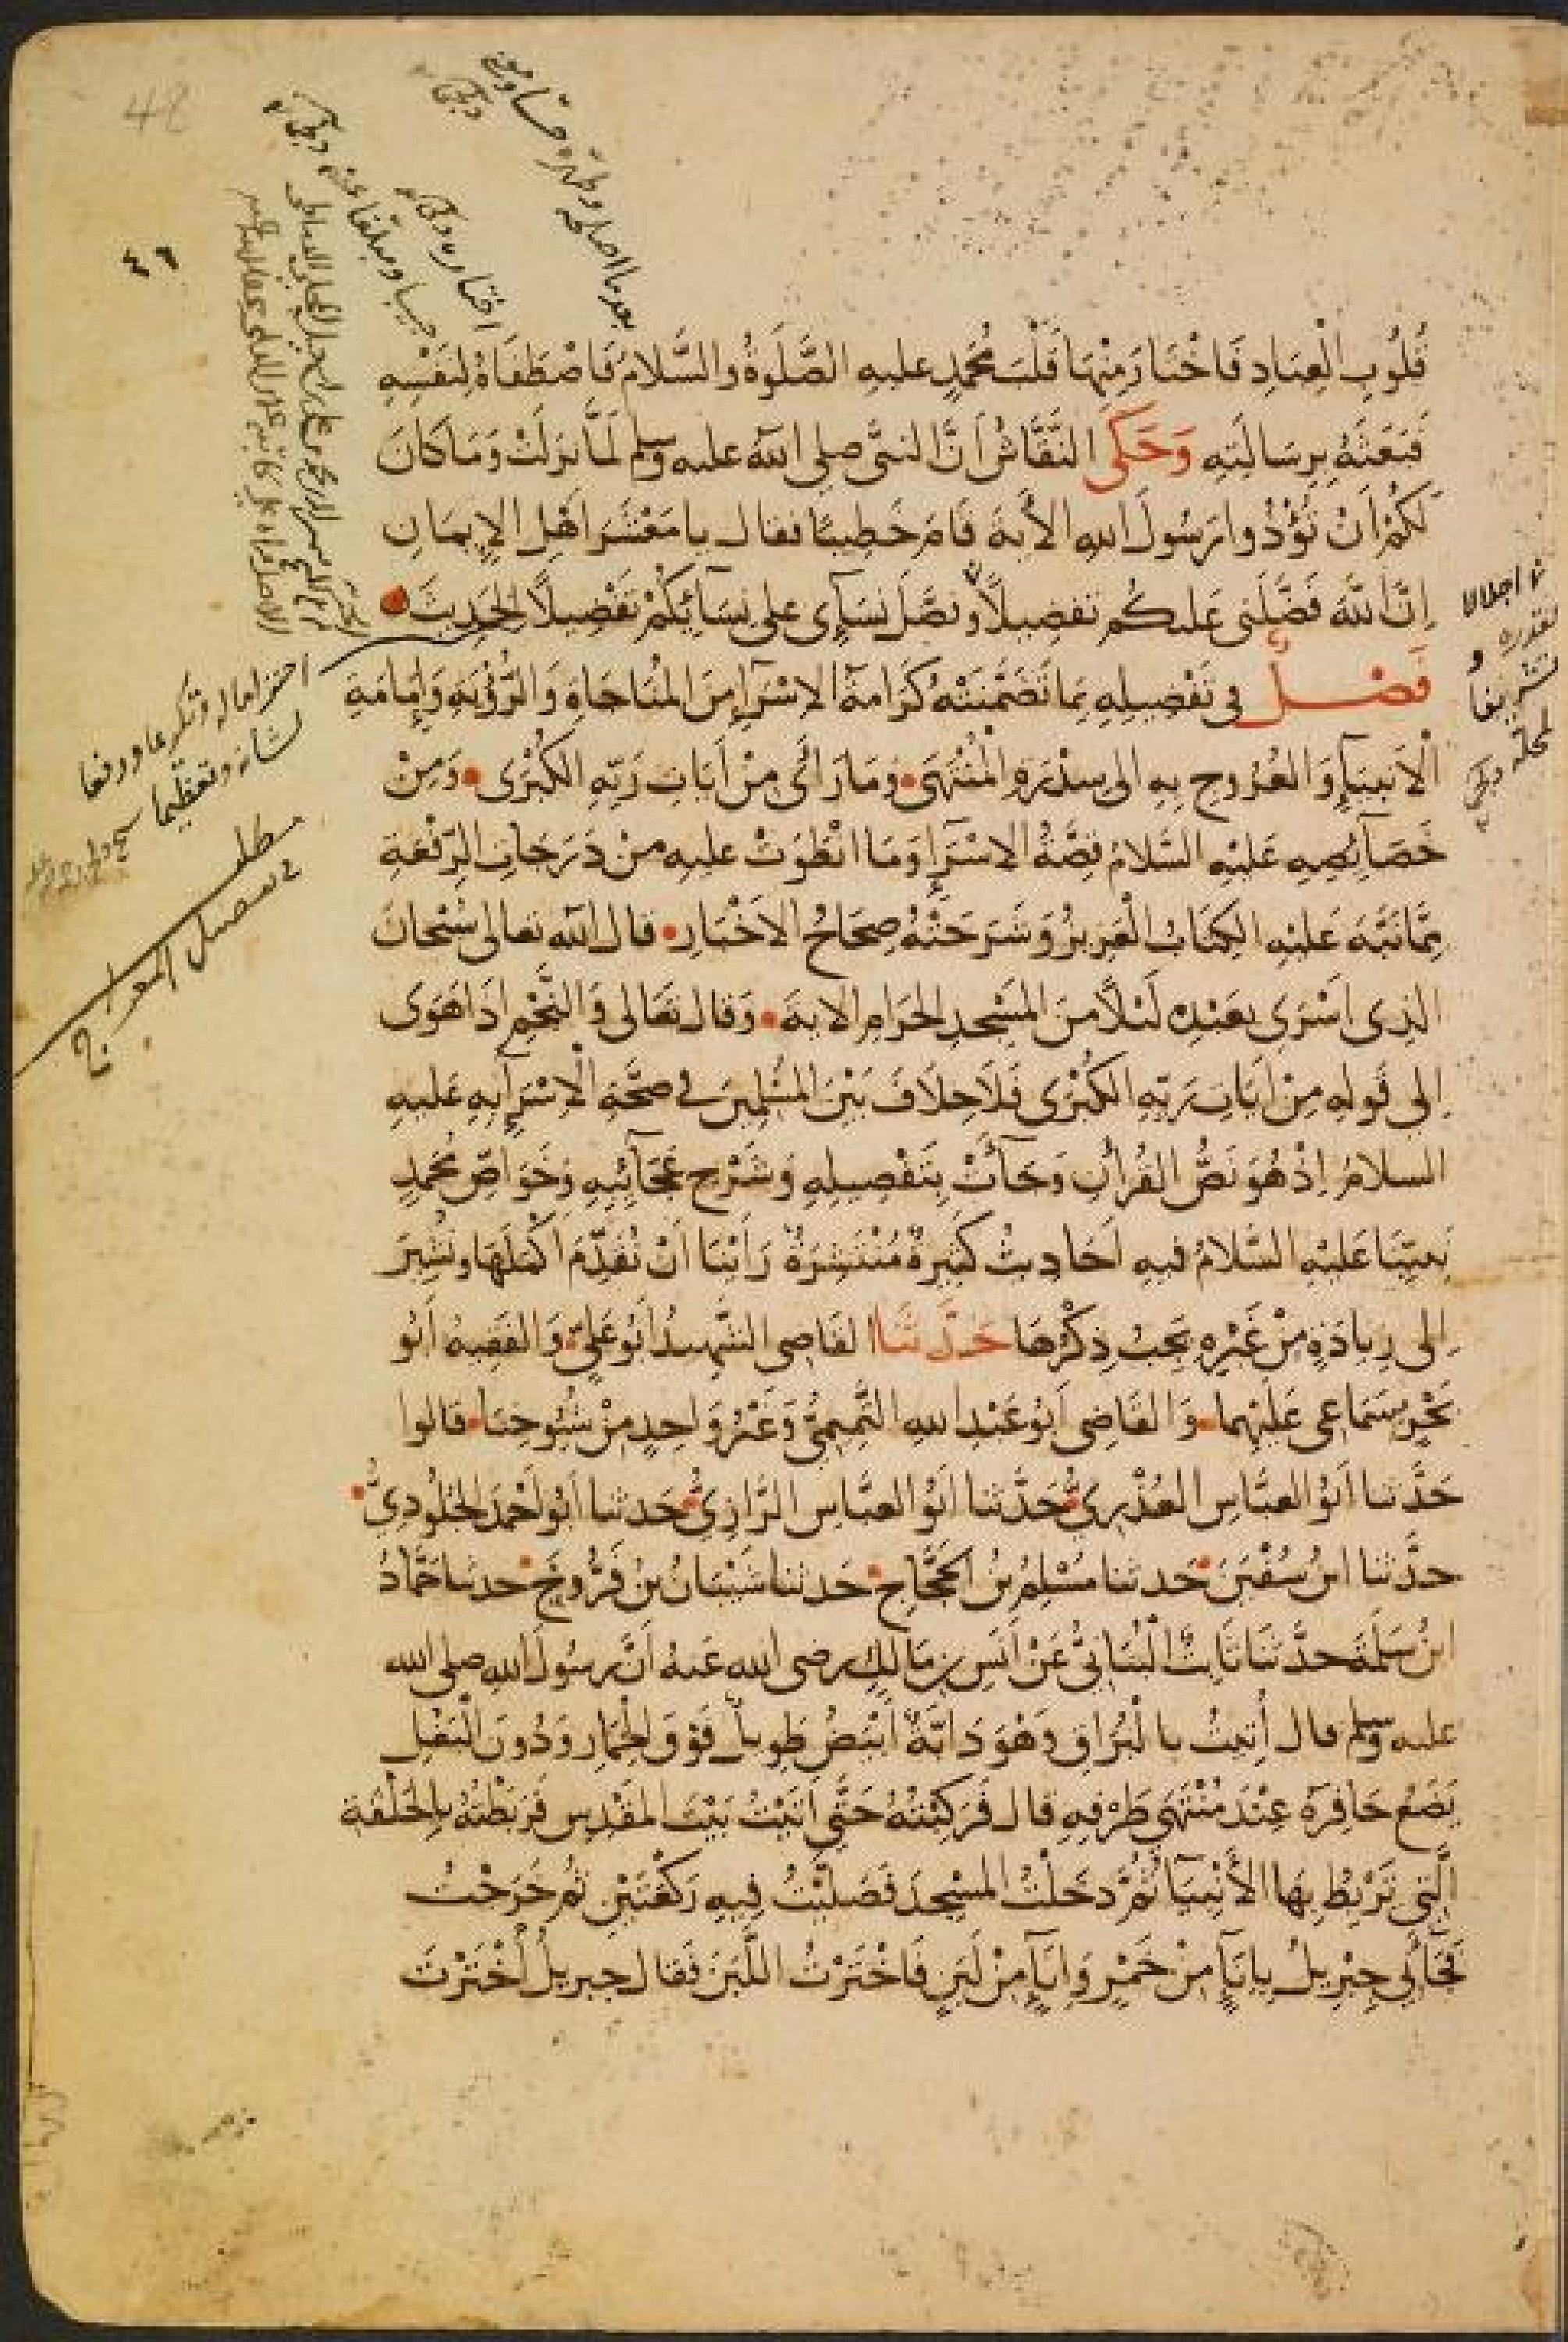 48
٤٦
قُلُوبِ الْعِبَادِ فَاخْتَارَ مِنْهَا قَلْبَ مُحَمَّدٍ عليهِ الصَّلٰوةُ والسَّلامُ فَاصْطَفَاهُ لِنَفْسِهِ
فَبَعَثَهُ بِرِسَالَتِهِ وَحَكَى النَّقَّاشُ أَنَّ النبيَّ صلى اللهُ عليه وسلم لَمَّا نزلَتْ وَمَا كَانَ
لَكُمْ أَنْ تُؤْذُوا رَسُولَ اللهِ الآيةَ قَامَ خَطِيبًا فقال يا مَعْشَرَ اَهْلِ الإيمَانِ
اِنَّ اللهَ فَضَّلَنى عَليكُم تفضِيلاً وفضَّلَ نسَآئي على نِسَآئِكُمْ تَفْضِيلاً الحَدِيثَ
فَصْلٌ في تَفْضِيلِهِ بِمَا تَضَمَّنَتْهُ كَرَامَةُ الاسْرَآءِ مِنَ المُنَاجَاةِ وَالرُّؤْيَةِ وَاِمَامَةِ
الْأَنبيَآءِ وَالعُرُوجِ بِهِ الى سِدْرَةِ الْمُنْتَهَى وَمَا رَأَى مِنْ آيَاتِ رَبِّهِ الكُبْرَى وَمِنْ
خَصَآئِصِهِ عَلَيْهِ السَّلامُ قِصَّةُ الاسْرَآءِ وَمَا انْطَوَتْ عليهِ مِنْ دَرَجَاتِ الرِّفْعَةِ
مِمَّا نَبَّهَ عَلَيْهِ الكِتَابُ الْعَزِيزُ وَشَرَحَتْهُ صِحَاحُ الاَخْبَارِ قال اللهُ تعالى سُبْحَانَ
الذِى اَسْرَى بعَبْدِهِ لَيْلاً مِنَ المَسْجِدِ الحَرَامِ الاية وَقال تعَالى وَالنَّجْمِ اِذَا هَوَى
اِلى قَولِهِ مِنْ اَيَاتِ رَبِّهِ الكُبْرَى فَلَا خِلَافَ بَيْنَ المُسْلِمِينَ في صِحَّةِ الْاِسْرَآءِ بِهِ عَليهِ
السلامُ اِذْ هُوَ نَصُّ القُرْآنِ وَجَآءَتْ بِتَفْصِيلِهِ وَشَرْحِ عَجَآئِبِهِ وَخَوَاصِّ مُحَمَّدٍ
نَبِيِّنَا عَلَيْهِ السَّلامُ فيهِ اَحَادِيثُ كَثِيرَةٌ مُنْتَشِرَةٌ رَأَيْنَا اَنْ نُقَدِّمَ اَكْمَلَهَا ونُشِيرَ
اِلى زِيَادَةٍ مِنْ غَيْرِهِ يَجِبُ ذِكْرُهَا حَدَّثَنَا القَاضِى الشَّهِيدُ اَبُو عَلِيٍّ وَالفَقِيهُ اَبُو
بَحْرٍ بِسَمَاعِى عَلَيْهِمَا وَالقَاضِى اَبُو عَبْدِ اللهِ التَّمِيمِيُّ وَغَيْرُ وَاحِدٍ مِنْ شُيُوخِنَا قالوا
حَدَّثنا اَبُو العَبَّاسِ العُذْرِيُّ حَدَّثنا اَبُو العبَّاسِ الرَّازِيُّ حَدثنا اَبُو اَحْمَدَ الجُلُودِيُّ
حدَّثنا ابنُ سُفْيَنَ حَدثنا مُسْلِمُ بنُ الحَجَّاجِ حَدثنا شَيْبَانُ بنُ فَرُّوخَ حدثنا حَمَّادُ
ابنُ سَلَمَةَ حدَّثنَا ثَابِتٌ الْبُنَانِيُّ عَنْ اَنَسِ بنِ مَالكٍ رضى الله عَنهُ اَنَّ رسُولَ اللهِ صلى الله
عليه وسلم قال اُتِيتُ بالْبُرَاقِ وَهْوَ دَابَّةٌ اَبْيَضُ طَويلٌ فَوْقَ الحِمَارِ وَدُونَ الْبَغْلِ
يَضَعُ حَافِرَهُ عِنْدَ مُنْتَهَى طَرْفِهِ قال فَرَكِبْتُهُ حَتَّى اَتَيْتُ بَيْتَ المَقْدِسِ فَرَبَطْتُهُ بِالحَلْقَةِ
الَّتِى تَرْبِطُ بِهَا الأَنْبِيَآءُ ثُمَّ دخَلْتُ المَسْجِدَ فَصَلَيْتُ فِيهِ رَكْعَتَيْنِ ثُمَّ خَرَجْتُ
فَجَآئَنِى جِبْرِيلُ بِاِنَآءٍ مِنْ خَمْرٍ وَاِنَآءٍ مِنْ لَبَنٍ فَاخْتَرْتُ اللَّبَنَ فَقال جبريلُ اَخْتَرْتَ
اجلالا
لقدره و
تشريفا
لمحله
احتراما له وتكريما ورفعا
لشانه وتعظيما
مطلب
في تفصيل المعراج